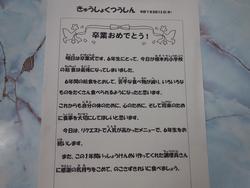 きゅうしょくつうしん
卒業おめでとう！
明日は卒業式です。6年生にとって、今日が
の給食は最後になってしまいました。
6年間の給食をとおして、苦手な食べ物が減り、いろいろな
ものをたくさん食べられるようになったと思います。
これからも自分の体のために、心のために、そして将来のために
食事を大切にしてほしいと思います。
今日は、リクエストで人気が高かったメニューで、6年生をお
祝いします。
また、この1年間いっしょうけんめい作ってくれた調理員さん
に感謝の気持ちをこめて、のこさずきれいに食べましょう。